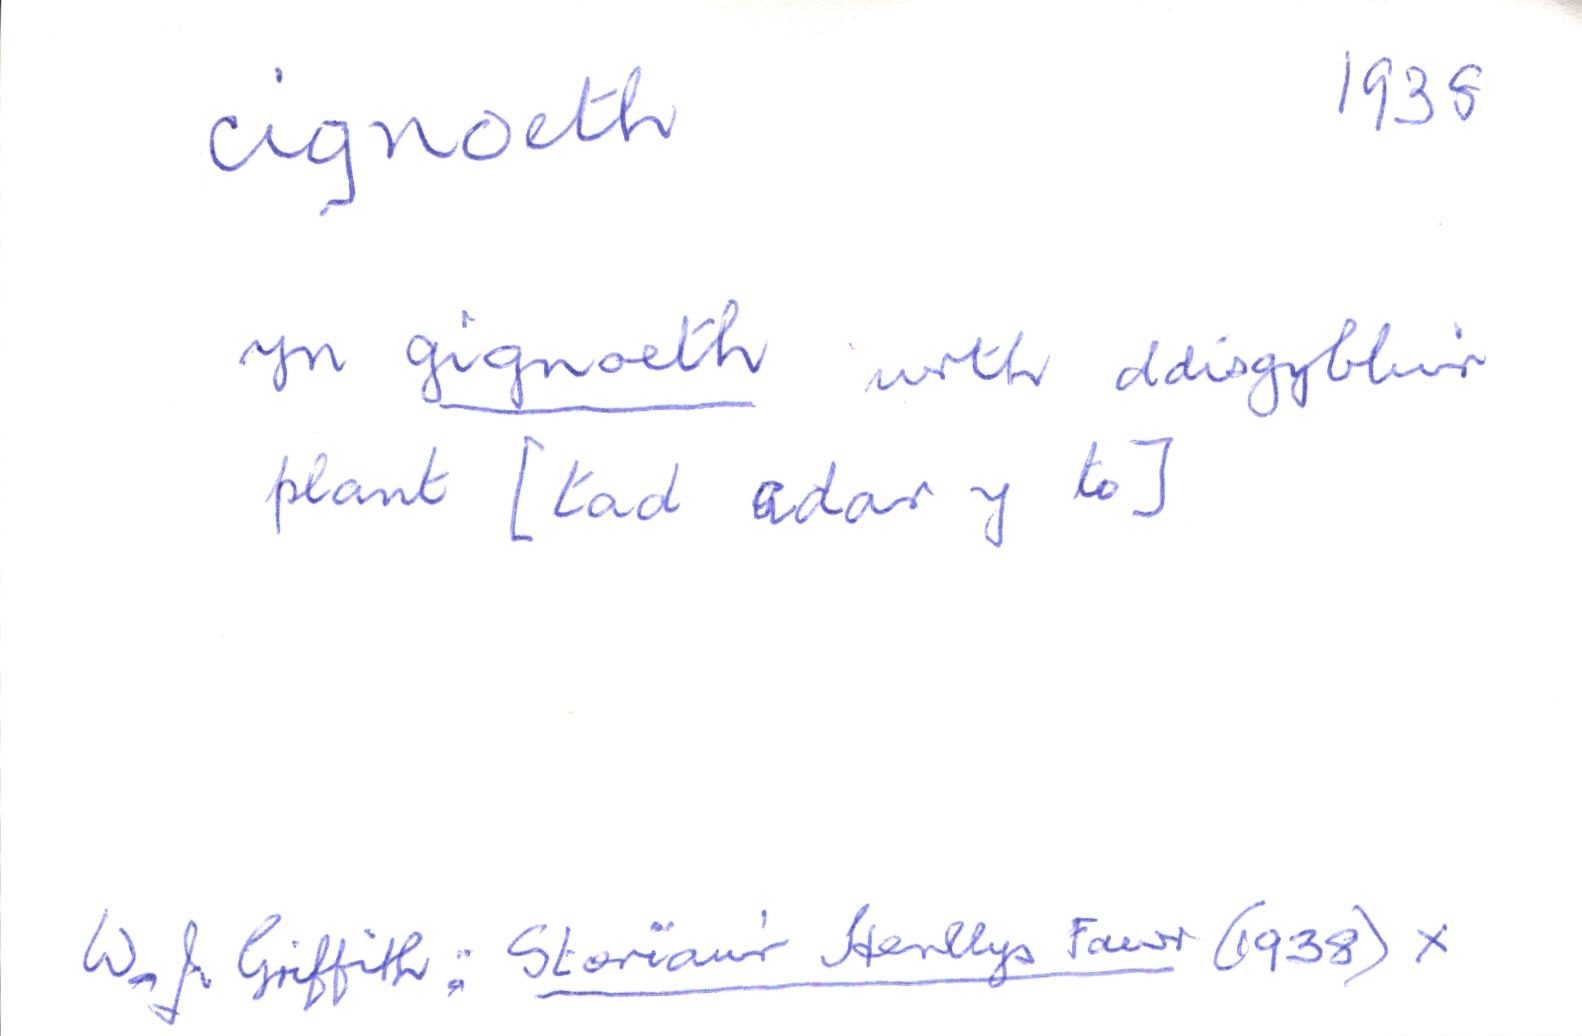 cignoeth 1938
yn gignoeth wrth ddisgyblu'r
plant [tad adar y to]
W. J. Griffith: Storïau'r Henllys Fawr (1938) x